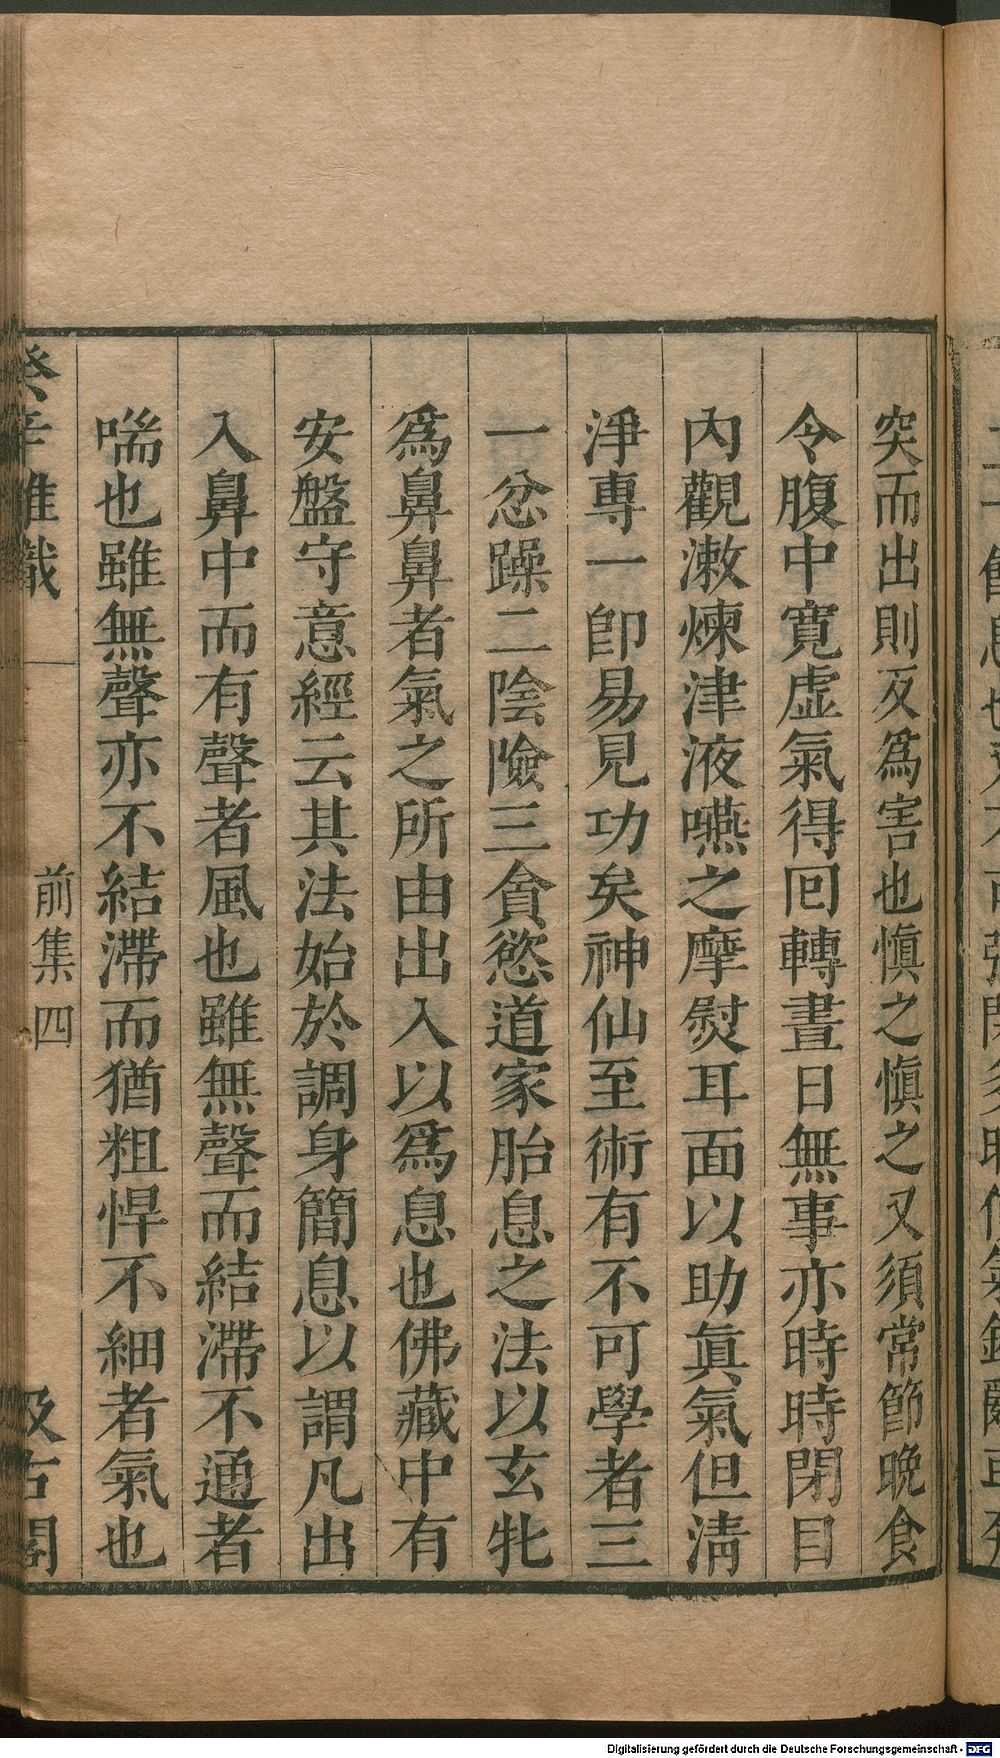 突而出則反爲害也慎之慎之又須常節晚食
令腹中寬虛氣得回轉晝日無事亦時時閉目
內觀漱煉津液嚥之摩熨耳面以助眞氣但清
淨專一卽易見功矣神仙至術有不可學者三
一忿躁二陰險三貪慾道家胎息之法以玄牝
爲鼻鼻者氣之所由出入以爲息也佛藏中有
安盤守意經云其法始於調身簡息以謂凡出
入鼻中而有聲者風也雖無聲而結滯不通者
喘也雖無聲亦不結滯而猶粗悍不細者氣也
癸辛雜識 前集四 汲古閣
Digitalisierung gefördert durch die Deutsche Forschungsgemeinschaft - DFG